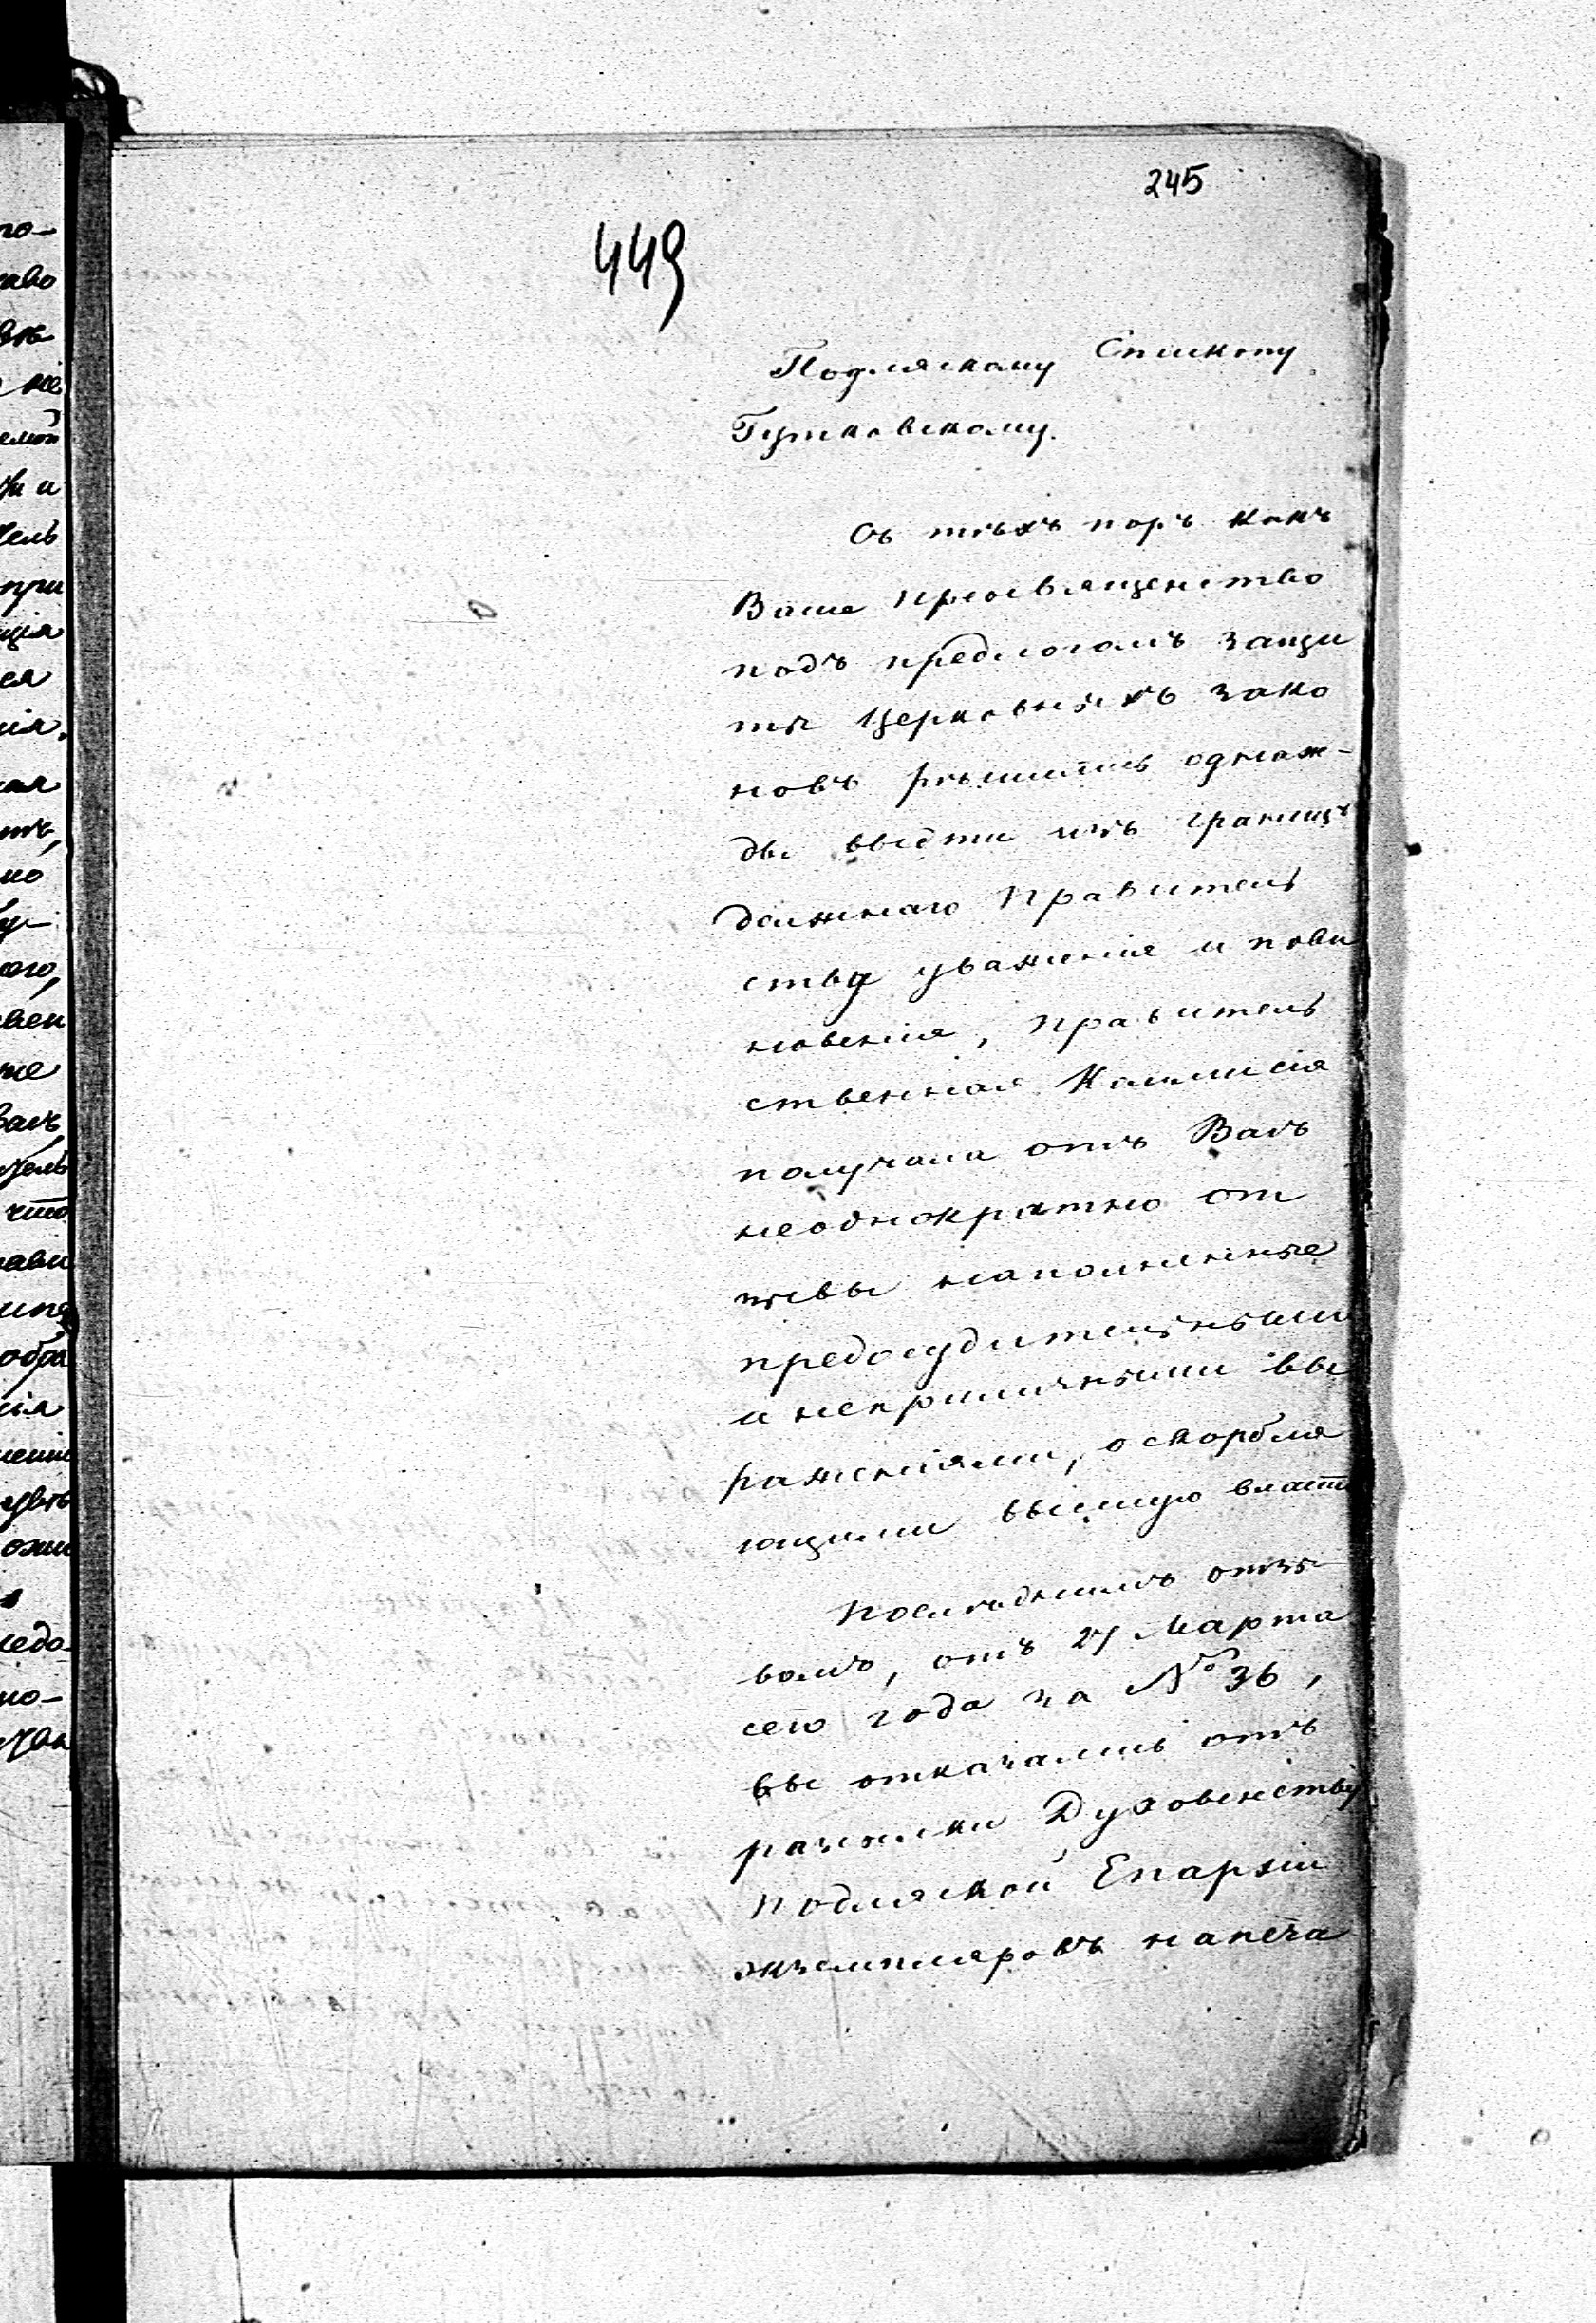 245
449
Подляскому Епископу
Гутковскому.
Съ тѣхъ поръ какъ
Ваше Преосвященство
подъ предлогомъ защи
ты Церковныхъ зако
новъ рѣшились однаж-
ды выдти изъ границъ
должнаго Правитель
ству уваженія и пови
новенія, Правитель
ственная Коммисія
получала отъ Васъ
неоднократно от
зывы наполненные
предосудительными
и неприличными вы
раженіями, оскорбля
ющими высшую власть
Послѣднимъ отзы
вомъ, отъ 27 Марта
сего года за № 36,
вы отказались отъ
разсылки Духовенству
Подляской Епархіи
экземпляровъ напеча